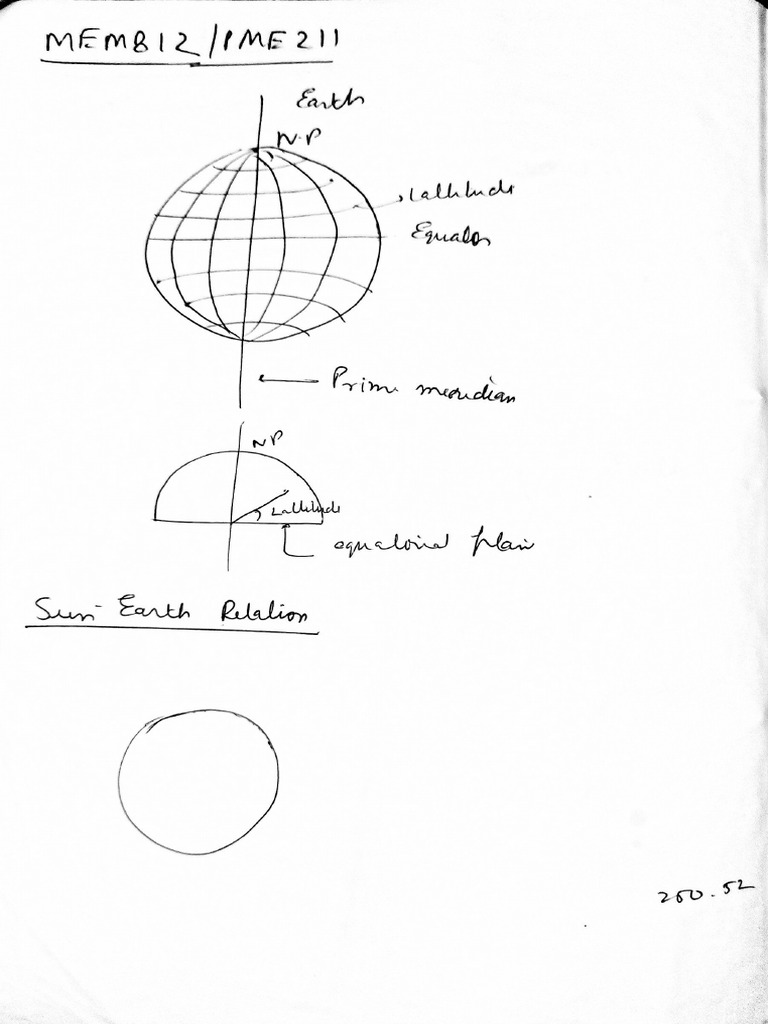 MEMB12/PME211
Earth
N.P
Lattitude
Equator
Prime meridian
NP
Lattitude
equatorial plain
Sun-Earth Relation
250.52